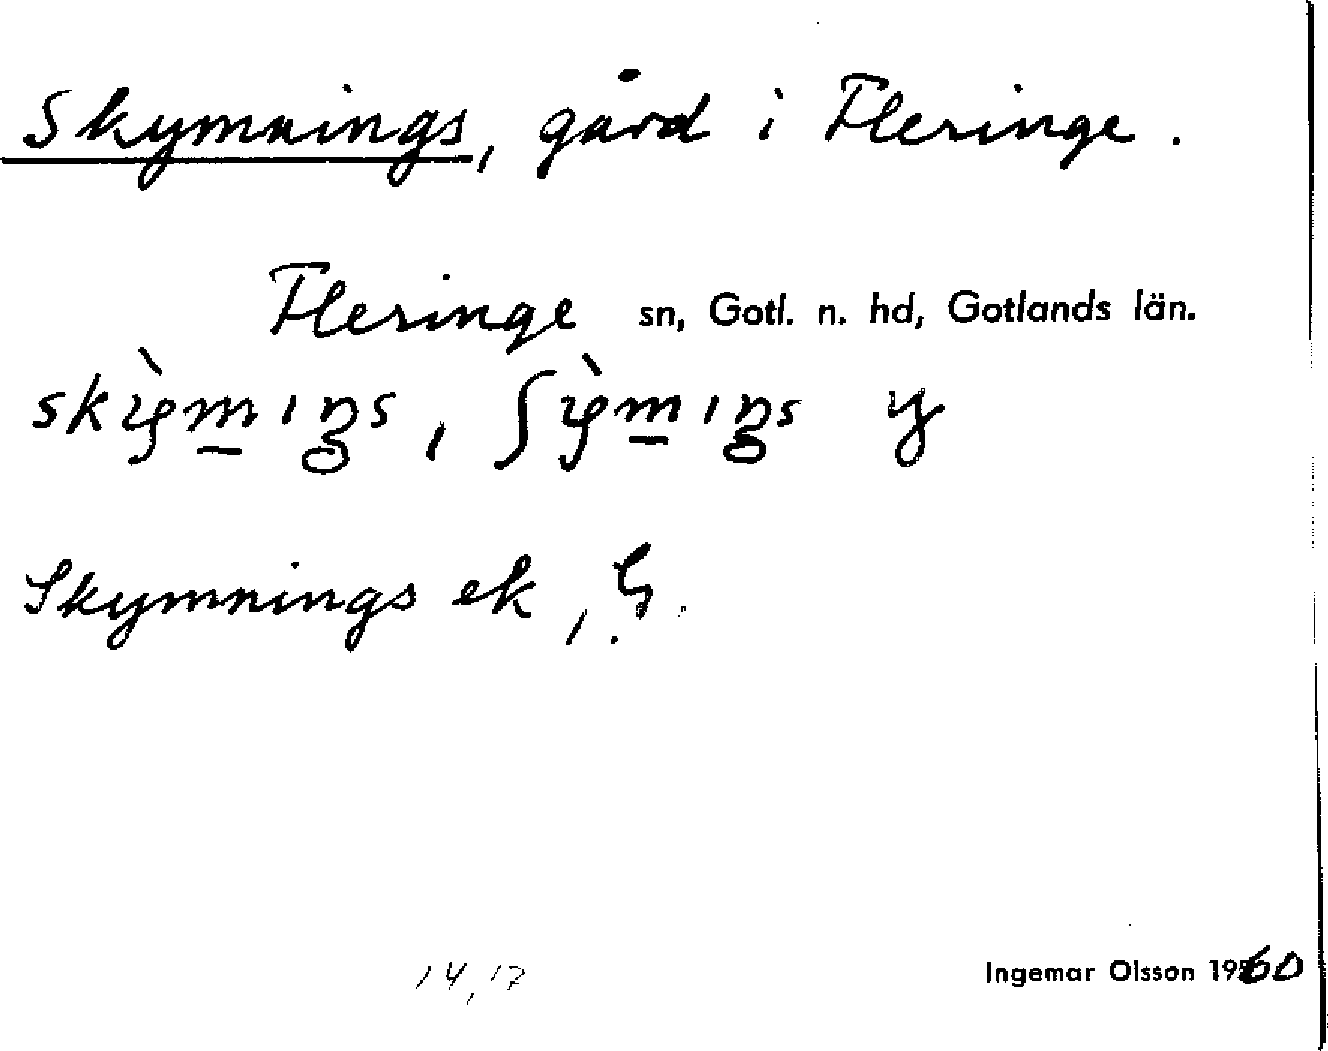 Skymnings, gård i Fleringe.
Fleringe sn, Gotl. n. hd, Gotlands län.
Skymnings ek, G.
14, 17
Ingemar Olsson 1960